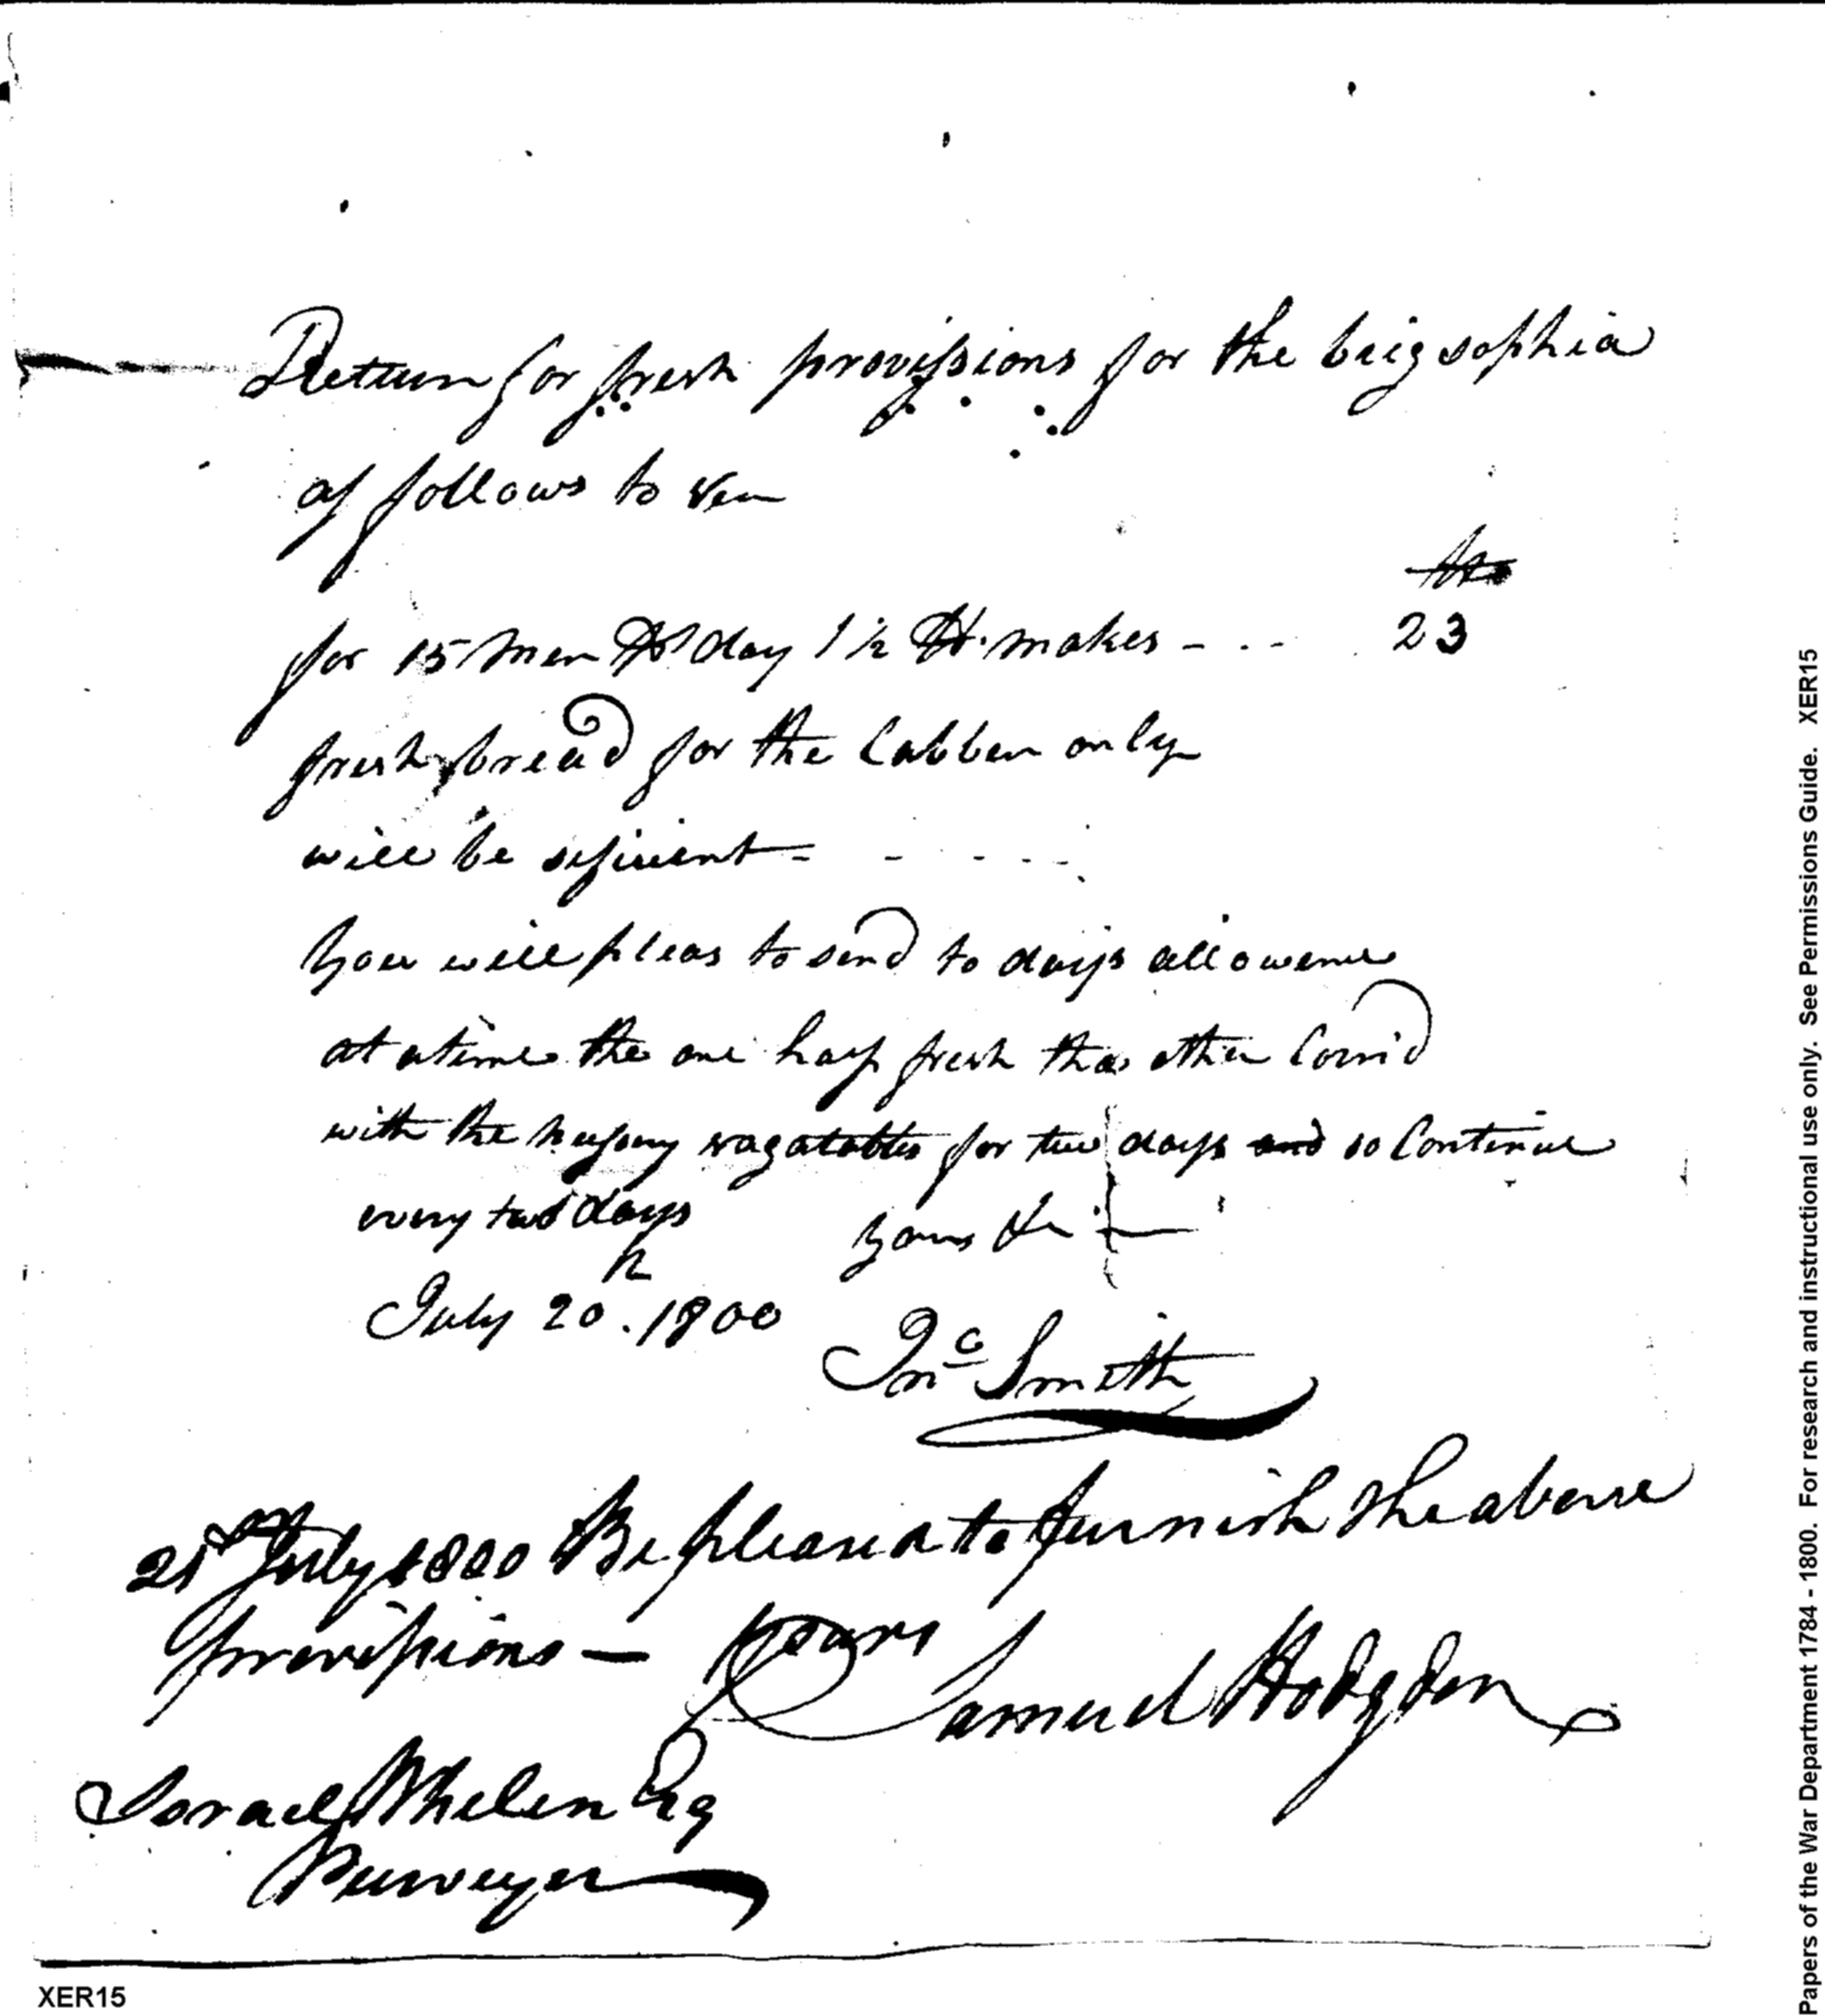 Return for fresh provissions for the brig sophia
as follows to
lbs
for 15 Men pr day 1 1/2 lb. makes - - - . 23
fresh bread for the Cabben only
will be sificient - - - - -
You will pleas to send to days allowence
at a time the one half fresh the other Corn'd
with the vagatables for two days and so Continue
every two days yours &c
July 20th. 1800
Jno Smith
21st July 1800 Be pleased to furnish the above
provissions — Yours
Samuel Hodgdon
Israel Whelen Esq
Purveyor
XER15
Papers of the War Department 1784 - 1800. For research and instructional use only. See Permissions Guide. XER15